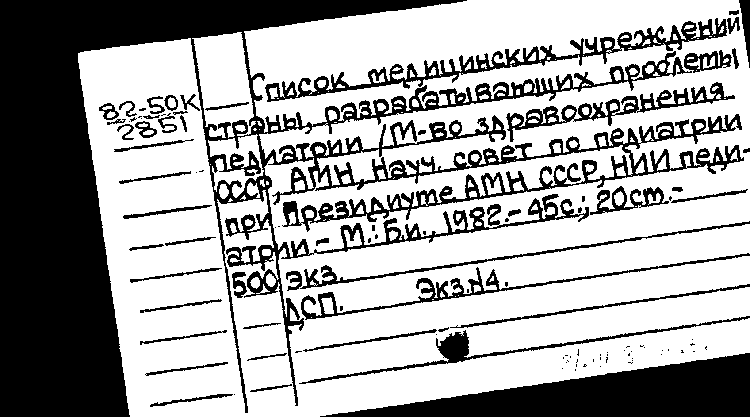 82-50К
2851
Список медицинских учреждений
страны, разрабатывающих проблемы
педиатрии / М-во здравоохранения
СССР, АМН, Науч. совет по педиатрии
при Президиуме АМН СССР, НИИ педи-
атрии.- М.: Б.и., 1982.- 45с.; 20см.-
500 экз.
ДСП. Экз.N4.